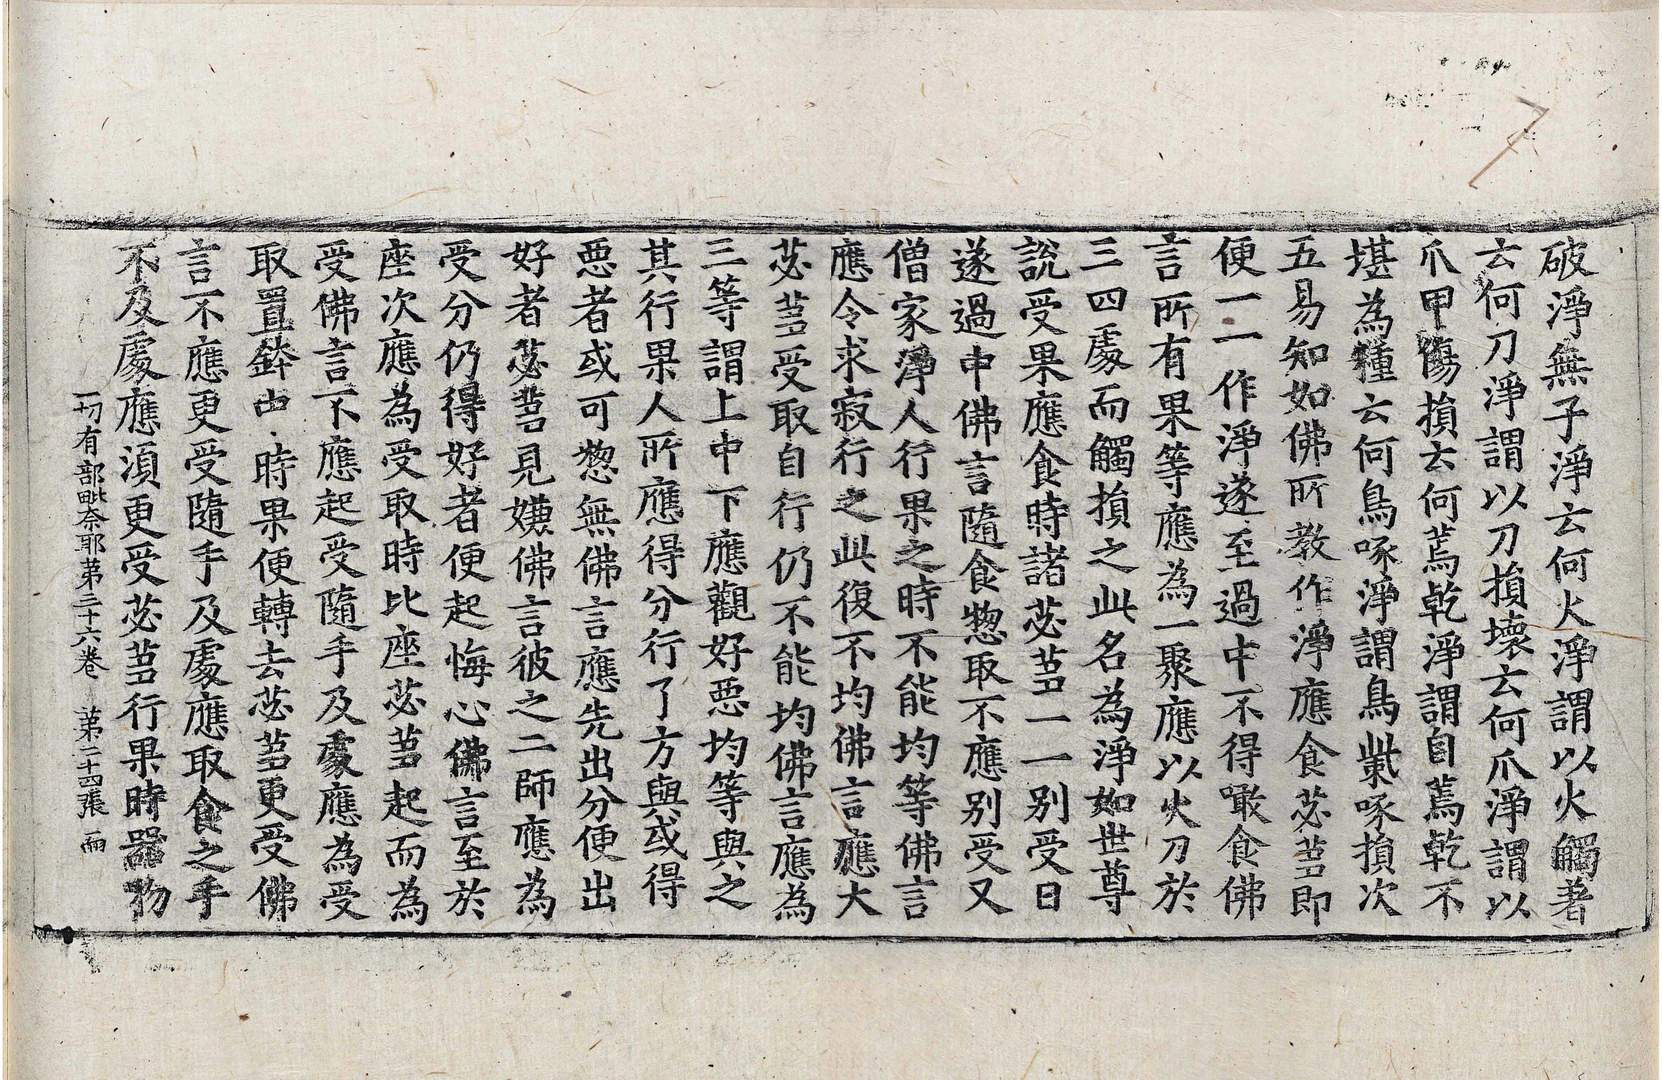 破淨無子淨云何火淨謂以火觸著
云何刀淨謂以刀損壞云何爪淨謂以
爪甲傷損云何蔫乾淨謂自蔫乾不
堪為種云何鳥啄淨謂鳥㭰啄損次
五易知如佛所教作淨應食苾芻即
便一一作淨遂至過中不得噉食佛
言所有果等應為一聚應以火刀於
三四處而觸損之此名為淨如世尊
說受果應食時諸苾芻一一別受日
遂過中佛言隨食惣取不應別受又
僧家淨人行果之時不能均等佛言
應令求寂行之此復不均佛言應大
苾芻受取自行仍不能均佛言應為
三等謂上中下應觀好惡均等與之
其行果人所應得分行了方與或得
惡者或可惣無佛言應先出分便出
好者苾芻見嫌佛言彼之二師應為
受分仍得好者便起悔心佛言至於
座次應為受取時比座苾芻起而為
受佛言不應起受隨手及處應為受
取置鉢中時果便轉去苾芻更受佛
言不應更受隨手及處應取食之手
不及處應須更受苾芻行果時器物
一切有部毗奈耶第三十六卷 第二十四張 而